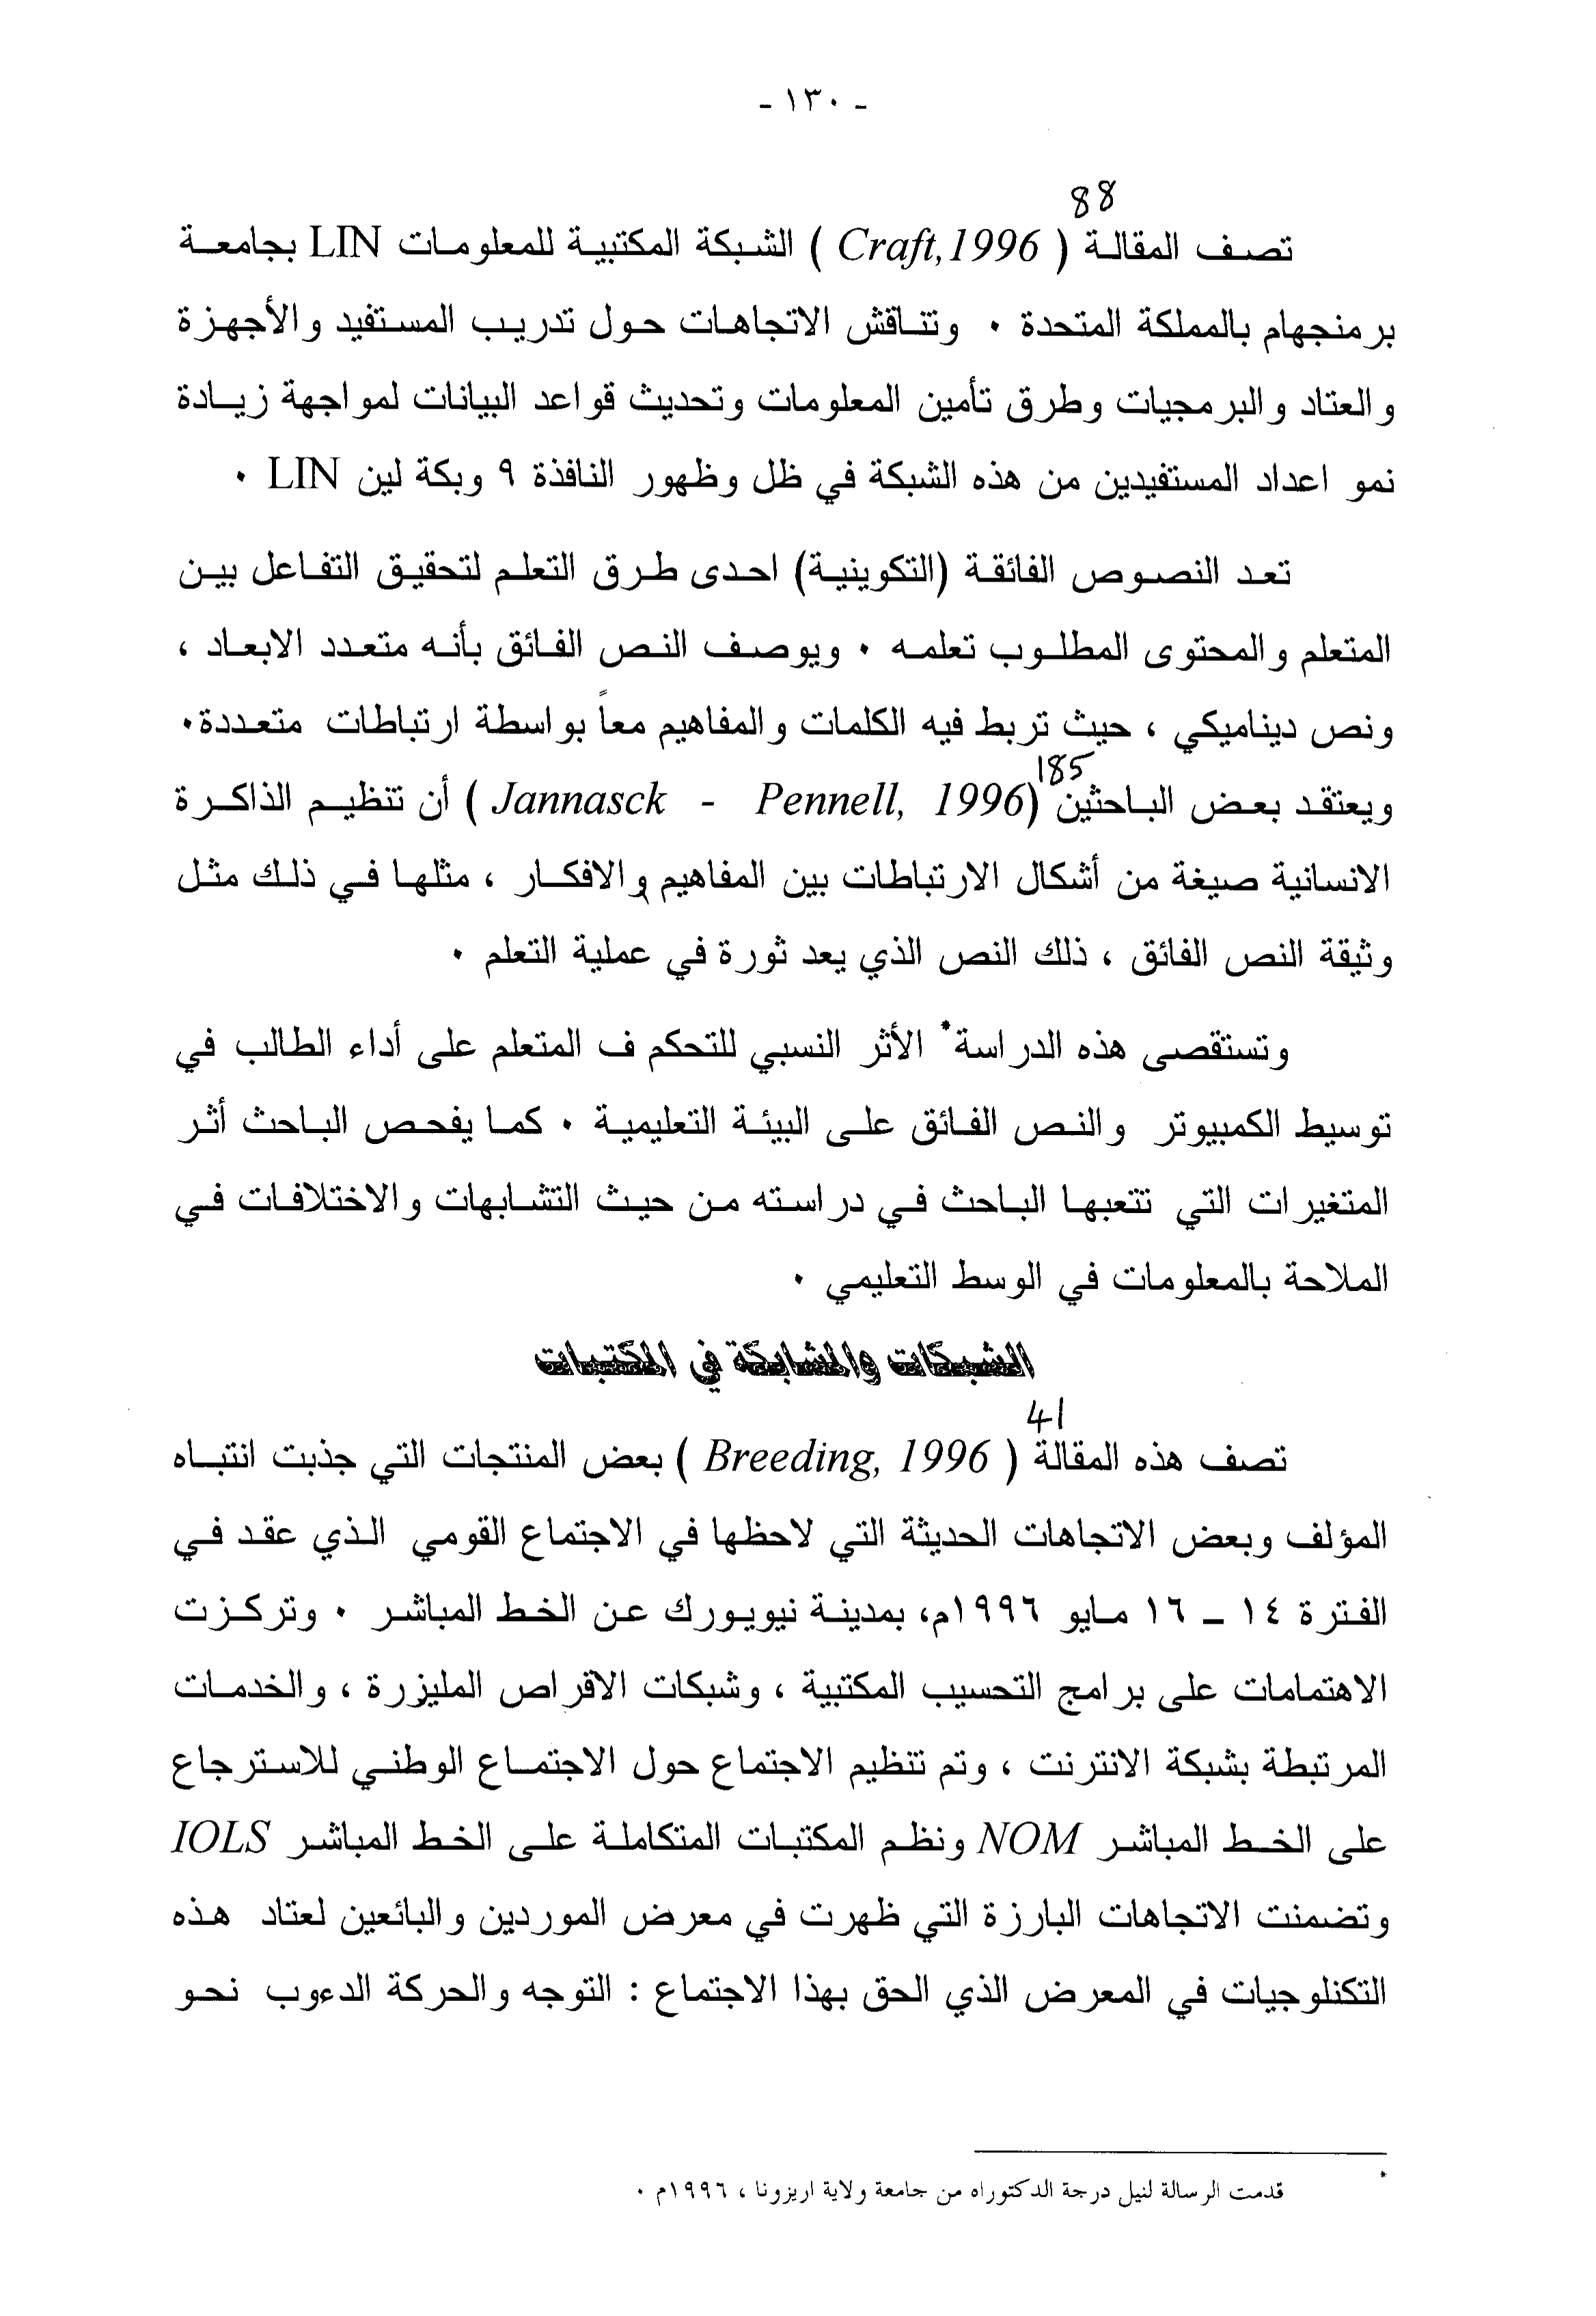 - ١٣٠ -
88
تصف المقالة ( Craft,1996 ) الشبكة المكتبية للمعلومات LIN بجامعة
برمنجهام بالمملكة المتحدة ٠ وتناقش الاتجاهات حول تدريب المستفيد والأجهزة
والعتاد والبرمجيات وطرق تأمين المعلومات وتحديث قواعد البيانات لمواجهة زيادة
نمو اعداد المستفيدين من هذه الشبكة في ظل وظهور النافذة ٩ وبكة لين LIN ٠
تعد النصوص الفائقة (التكوينية) احدى طرق التعلم لتحقيق التفاعل بين
المتعلم والمحتوى المطلوب تعلمه ٠ ويوصف النص الفائق بأنه متعدد الابعاد ،
ونص ديناميكي ، حيث تربط فيه الكلمات والمفاهيم معاً بواسطة ارتباطات متعددة٠
185
ويعتقد بعض الباحثين (Jannasck - Pennell, 1996 ) أن تنظيم الذاكرة
الانسانية صيغة من أشكال الارتباطات بين المفاهيم والافكار ، مثلها في ذلك مثل
وثيقة النص الفائق ، ذلك النص الذي يعد ثورة في عملية التعلم ٠
وتستقصى هذه الدراسة* الأثر النسبي للتحكم ف المتعلم على أداء الطالب في
توسيط الكمبيوتر والنص الفائق على البيئة التعليمية ٠ كما يفحص الباحث أثر
المتغيرات التي تتعبها الباحث في دراسته من حيث التشابهات والاختلافات في
الملاحة بالمعلومات في الوسط التعليمي ٠
الشبكات والمشابكة في المكتبات
41
تصف هذه المقالة ( Breeding, 1996 ) بعض المنتجات التي جذبت انتباه
المؤلف وبعض الاتجاهات الحديثة التي لاحظها في الاجتماع القومي الذي عقد في
الفترة ١٤ – ١٦ مايو ١٩٩٦م، بمدينة نيويورك عن الخط المباشر ٠ وتركزت
الاهتمامات على برامج التحسيب المكتبية ، وشبكات الاقراص المليزرة ، والخدمات
المرتبطة بشبكة الانترنت ، وتم تنظيم الاجتماع حول الاجتماع الوطني للاسترجاع
على الخط المباشر NOM ونظم المكتبات المتكاملة على الخط المباشر IOLS
وتضمنت الاتجاهات البارزة التي ظهرت في معرض الموردين والبائعين لعتاد هذه
التكنلوجيات في المعرض الذي الحق بهذا الاجتماع : التوجه والحركة الدءوب نحو
* قدمت الرسالة لنيل درجة الدكتوراه من جامعة ولاية اريزونا ، ١٩٩٦م ٠